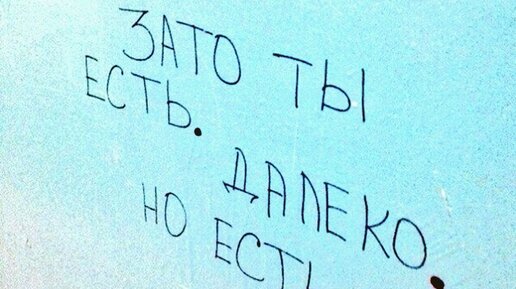 ЗАТО ТЫ
ЕСТЬ.
ДАЛЕКО.
НО ЕСТЬ